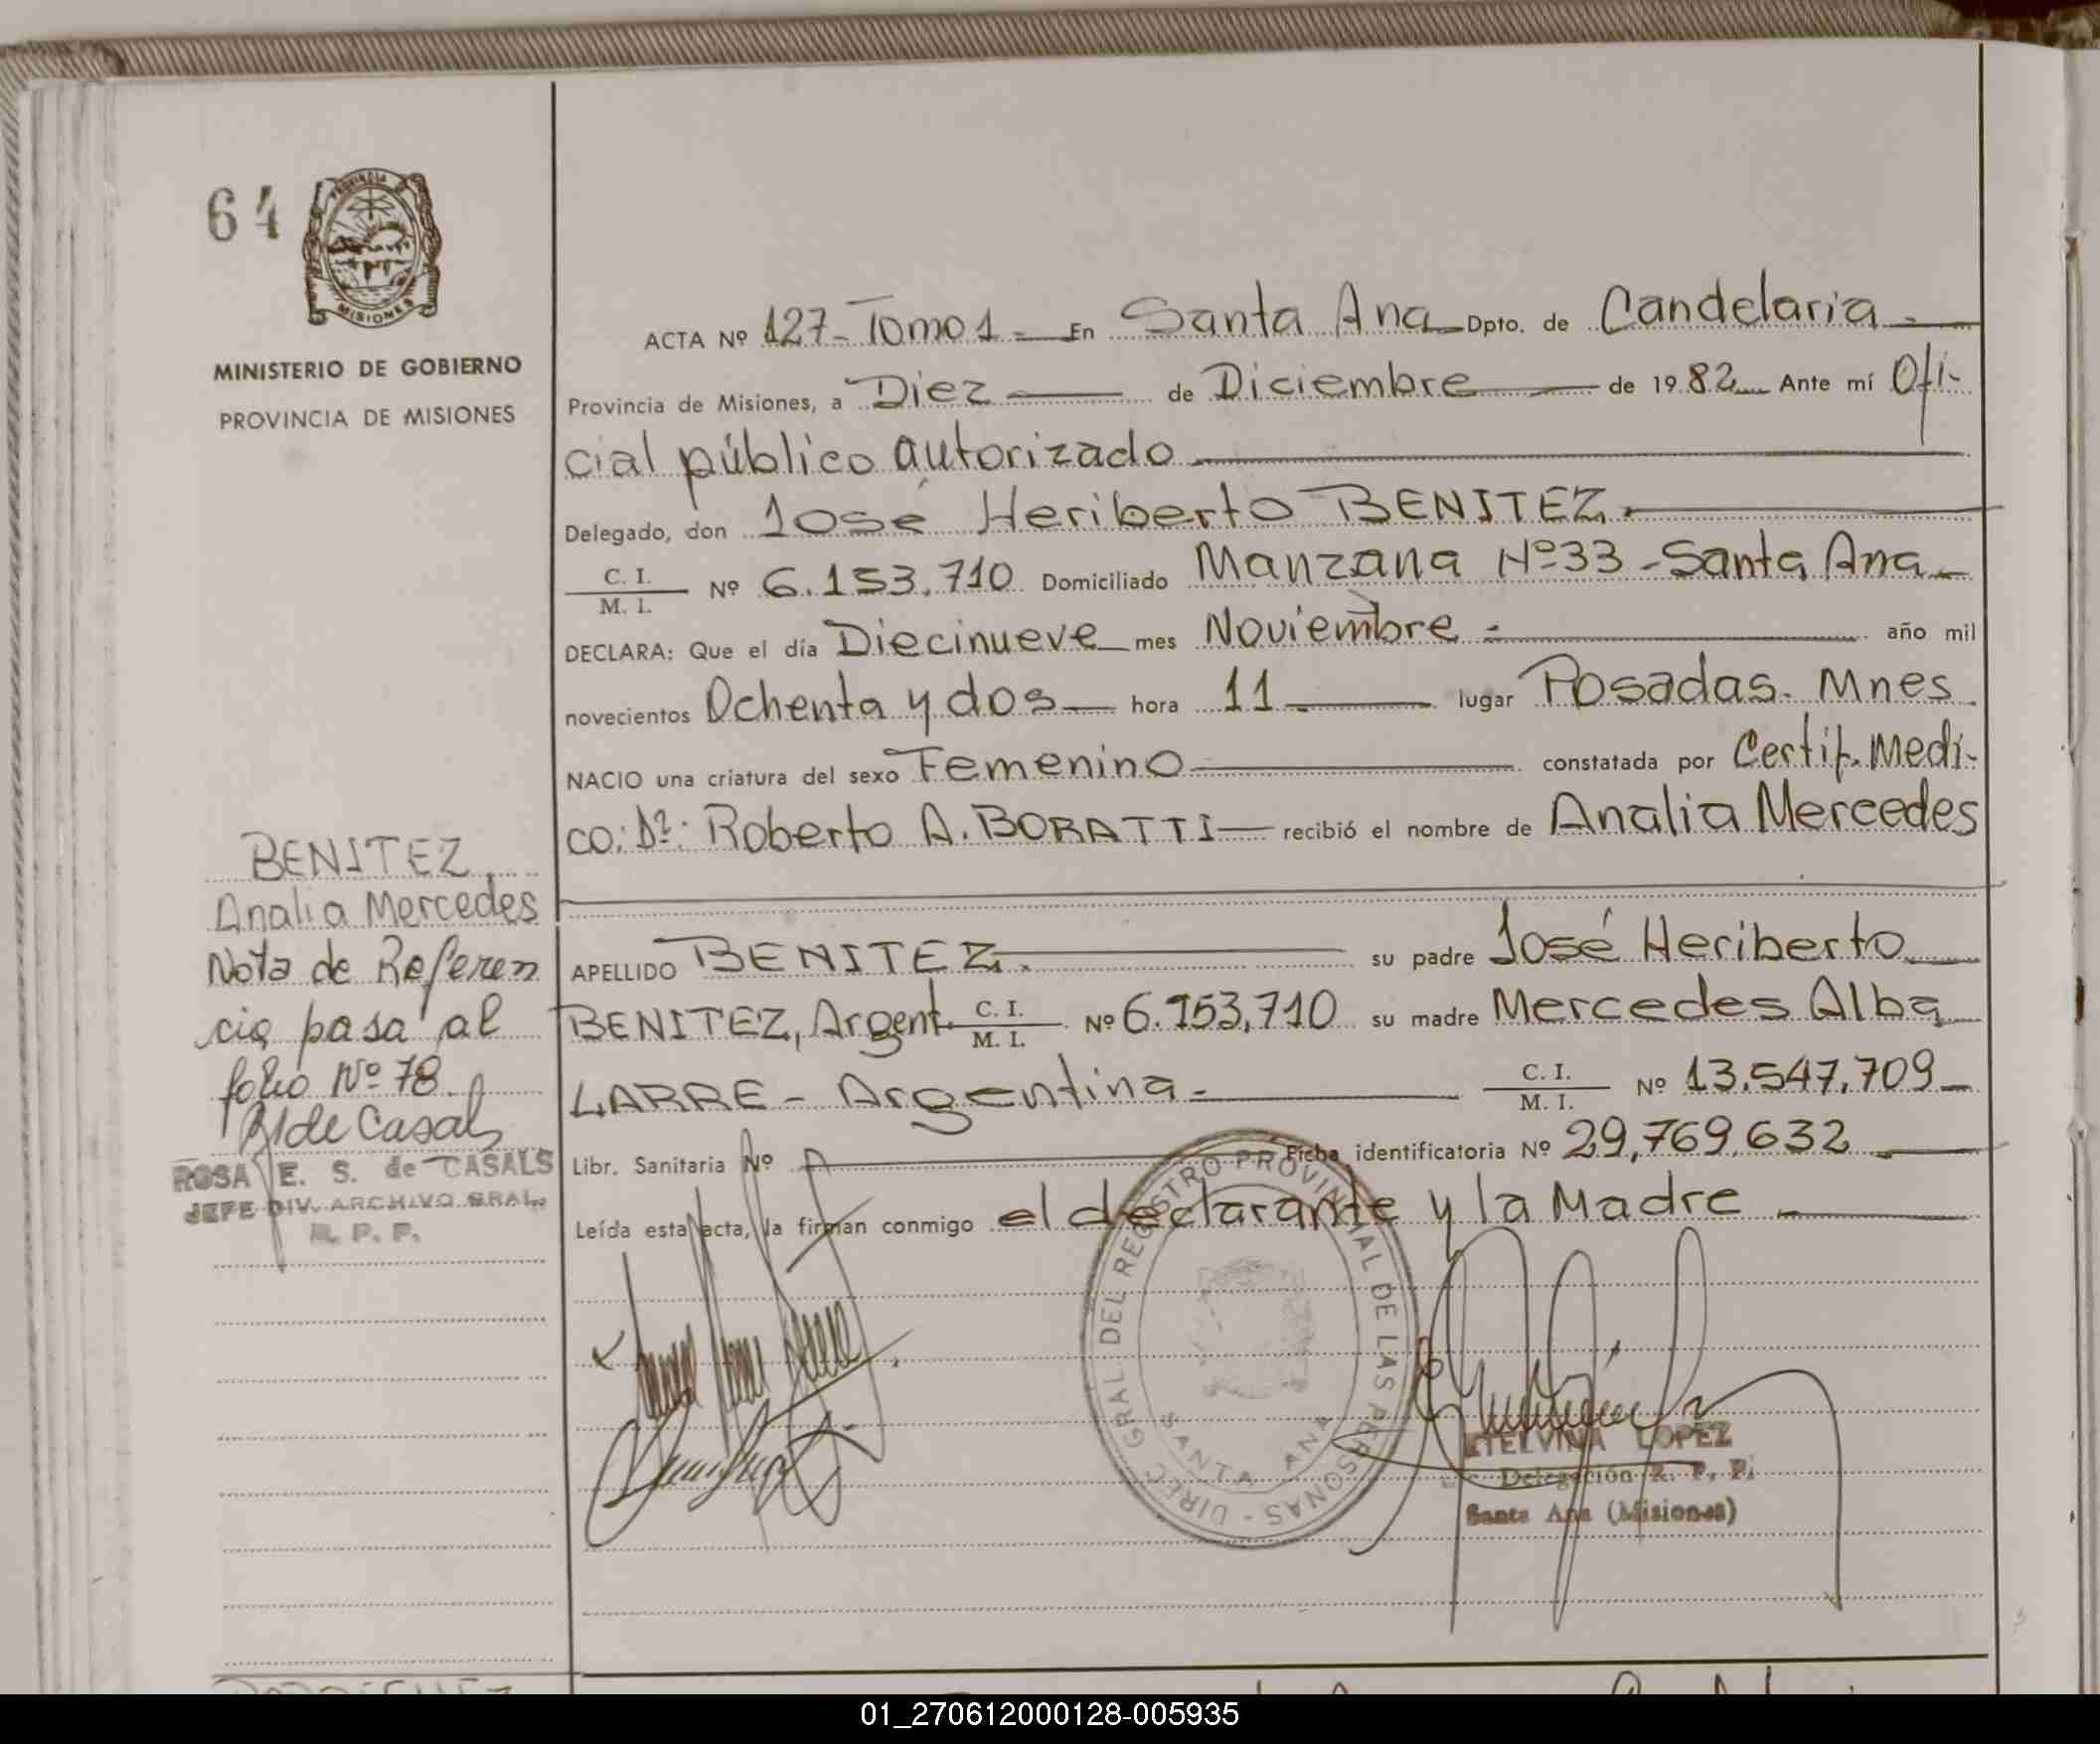 64
PROVINCIA DE
MISIONES
MINISTERIO DE GOBIERNO
PROVINCIA DE MISIONES
ACTA Nº 127-Tomo 1- En Santa Ana Dpto. de Candelaria-
Provincia de Misiones, a Diez de Diciembre de 1982 Ante mí Ofi-
cial público autorizado
Delegado, don José Heriberto BENITEZ.
C. I.
M. I. Nº 6.153.710 Domiciliado Manzana Nº33-Santa Ana
DECLARA: Que el día Diecinueve mes Noviembre - año mil
novecientos Ochenta y dos hora 11 lugar Posadas. Mnes
NACIO una criatura del sexo Femenino constatada por Certif. Medi-
co: Dr: Roberto A. BORATTI recibió el nombre de Analia Mercedes
APELLIDO BENITEZ. su padre José Heriberto
BENITEZ, Argent. C. I.
M. I. Nº 6.153,710 su madre Mercedes Alba
LARRE - Argentina - C. I.
M. I. Nº 13.547.709
Libr. Sanitaria Nº Ficha identificatoria Nº 29,769.632
Leída esta acta, la firman conmigo el declarante y la Madre -
BENITEZ,
Analia Mercedes
Nota de Referen
cia pasa al
folio Nº 78
R de Casals
ROSA E. S. de CASALS
JEFE DIV. ARCHIVO GRAL.
R. P. P.
DIREC. GRAL. DEL REGISTRO PROVINCIAL DE LAS PERSONAS -
SANTA ANA
ETELVINA LOPEZ
Delegación R. P. P.
Santa Ana (Misiones)
01_270612000128-005935